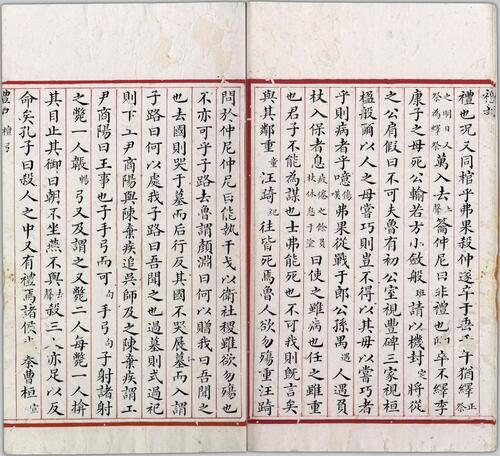 禮記
禮也况又同棺乎弗果殺仲遂卒于垂壬午猶繹正祭
之明日又祭為繹祭萬入去上聲籥仲尼曰非禮也卿卒不繹季
康子之母死公輸若方小歛般班請以機封窆將從
之公肩假曰不可夫魯有初公室視豐碑三家視桓
楹般爾以人之母嘗巧則豈不得以其毋以嘗巧者
乎則病者乎噫傷嘆弗果從戰于郎公孫禺遇人遇負
杖入保者息疲倦之餘負杖休息于塗曰使之雖病也任之雖重
也君子不能為謀也士弗能死也不可我則既言矣
與其鄰重童汪踦紀往皆死焉魯人欲勿殤重汪踦
問於仲尼仲尼曰能執干戈以衛社稷雖欲勿殤也
不亦可乎子路去魯謂顏淵曰何以贈我曰吾聞之
也去國則哭于墓而后行反其國不哭展墓而入謂
子路曰何以處我子路曰吾聞之也過墓則式過祀
則下工尹商陽與陳棄疾追吳師及之陳棄疾謂工
尹商陽曰王事也子手弓而可句手弓句子射諸射
之斃一人韔暢弓又及謂之又斃二人每斃一人揜
其目止其御曰朝不坐燕不與去聲殺三人亦足以反
命矣孔子曰殺人之中又有禮焉諸侯伐秦曹桓宣
禮記 檀弓